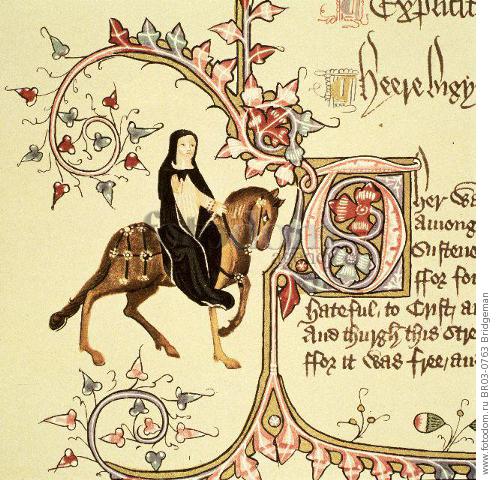 Explicit
Heere bigy
Ther wa
Among
Sustene
ffor fo
hateful to Crist / a
And thurgh this stre
ffor it was free / an
fotodom
www.fotodom.ru BR03-0763 Bridgeman